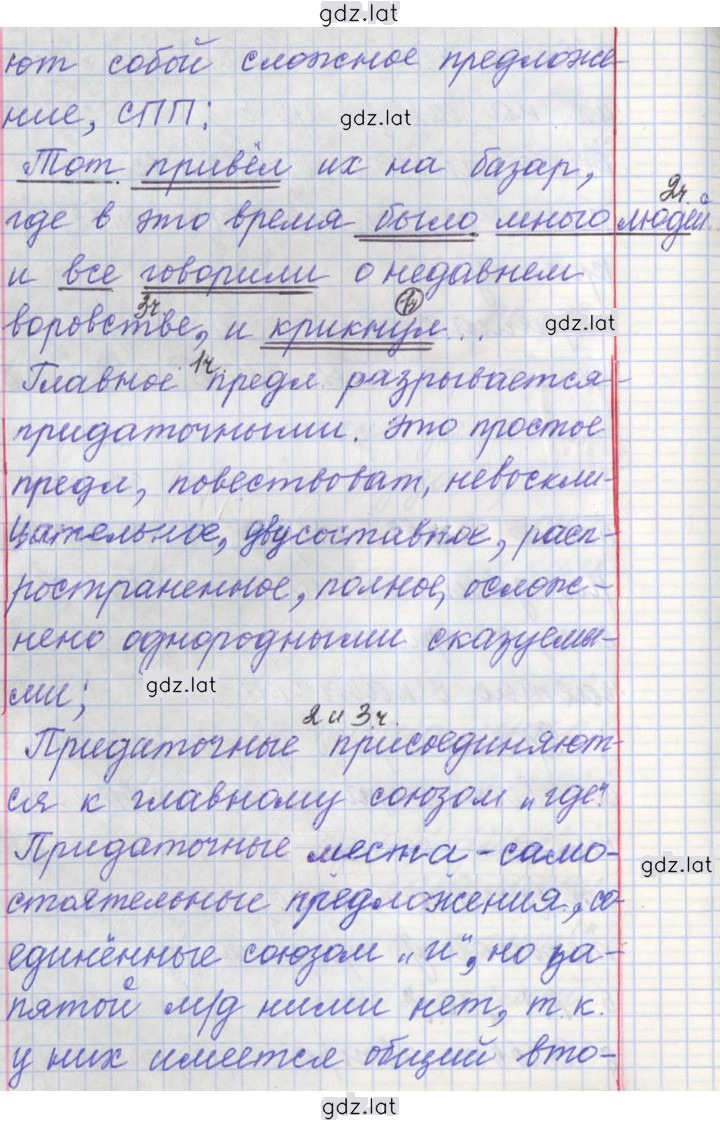 gdz.lat
ют собой сложное предложе-
ние, СПП:
gdz.lat
Тот привёл их на базар,
2ч.
где в это время было много людей
и все говорили о недавнем
3ч. 1ч
воровстве, и крикнул...
gdz.lat
1ч
Главное предл. разрывается
придаточными. Это простое
предл, повествоват, невоскли-
цательное, двусоставное, расп-
ространенное, полное, ослож-
нено однородными сказуемы-
ми;
gdz.lat
2 и 3ч.
Придаточные присоединяют-
ся к главному союзом „где“.
Придаточные места - само-
gdz.lat
стоятельные предложения, со-
единённые союзом „и“, но за-
пятой м/д ними нет, т.к.
у них имеется общий вто-
gdz.lat